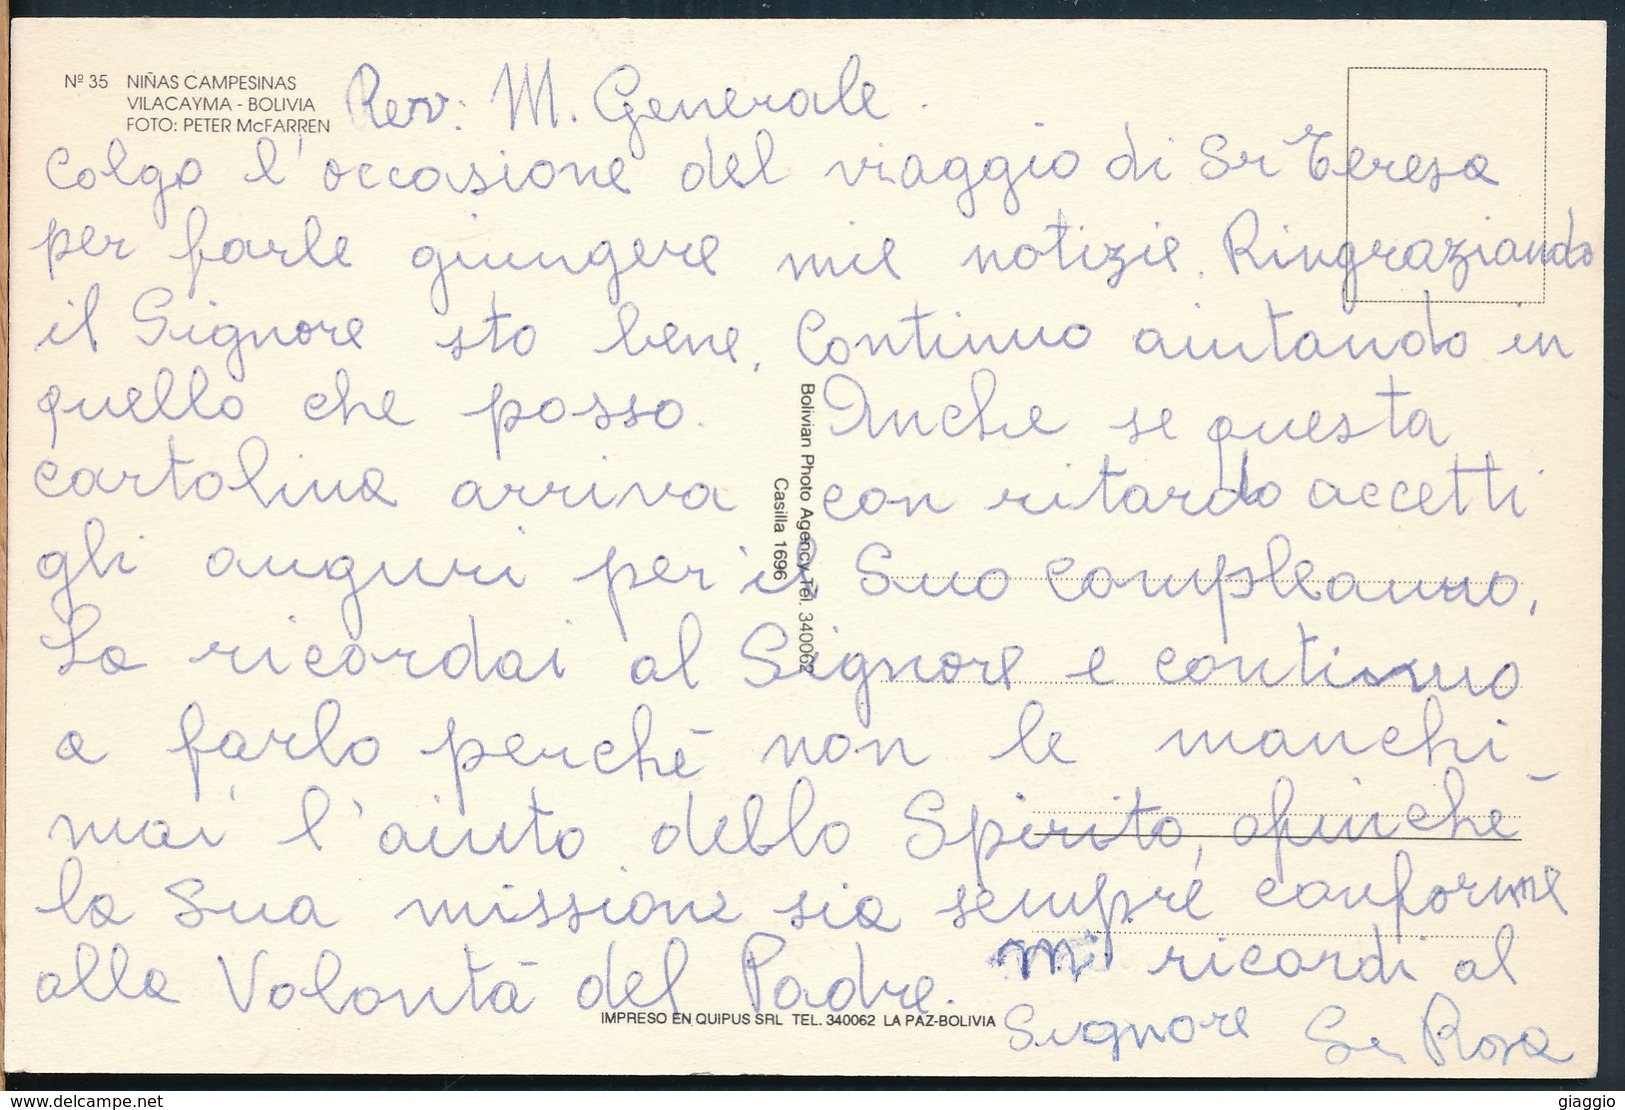 Nº 35 NIÑAS CAMPESINAS
VILACAYMA - BOLIVIA
FOTO: PETER McFARREN
Rev. M. Generale.
Colgo l'occasione del viaggio di Sr Teresa
per farle giungere mie notizie. Ringraziando
il Signore sto bene. Continuo aiutando in
quello che posso. Anche se questa
cartolina arriva con ritardo accetti
gli auguri per il Suo compleanno,
La ricordai al Signore e continuo
a farlo perchè non le manchi
mai l'aiuto dello Spirito, affinchè
la Sua missione sia sempre conforme
alla Volontà del Padre. Mi ricordi al
Signore Sr Rosa
Bolivian Photo Agency Tel. 340062
Casilla 1696
IMPRESO EN QUIPUS SRL TEL. 340062 LA PAZ-BOLIVIA
www.delcampe.net
giaggio